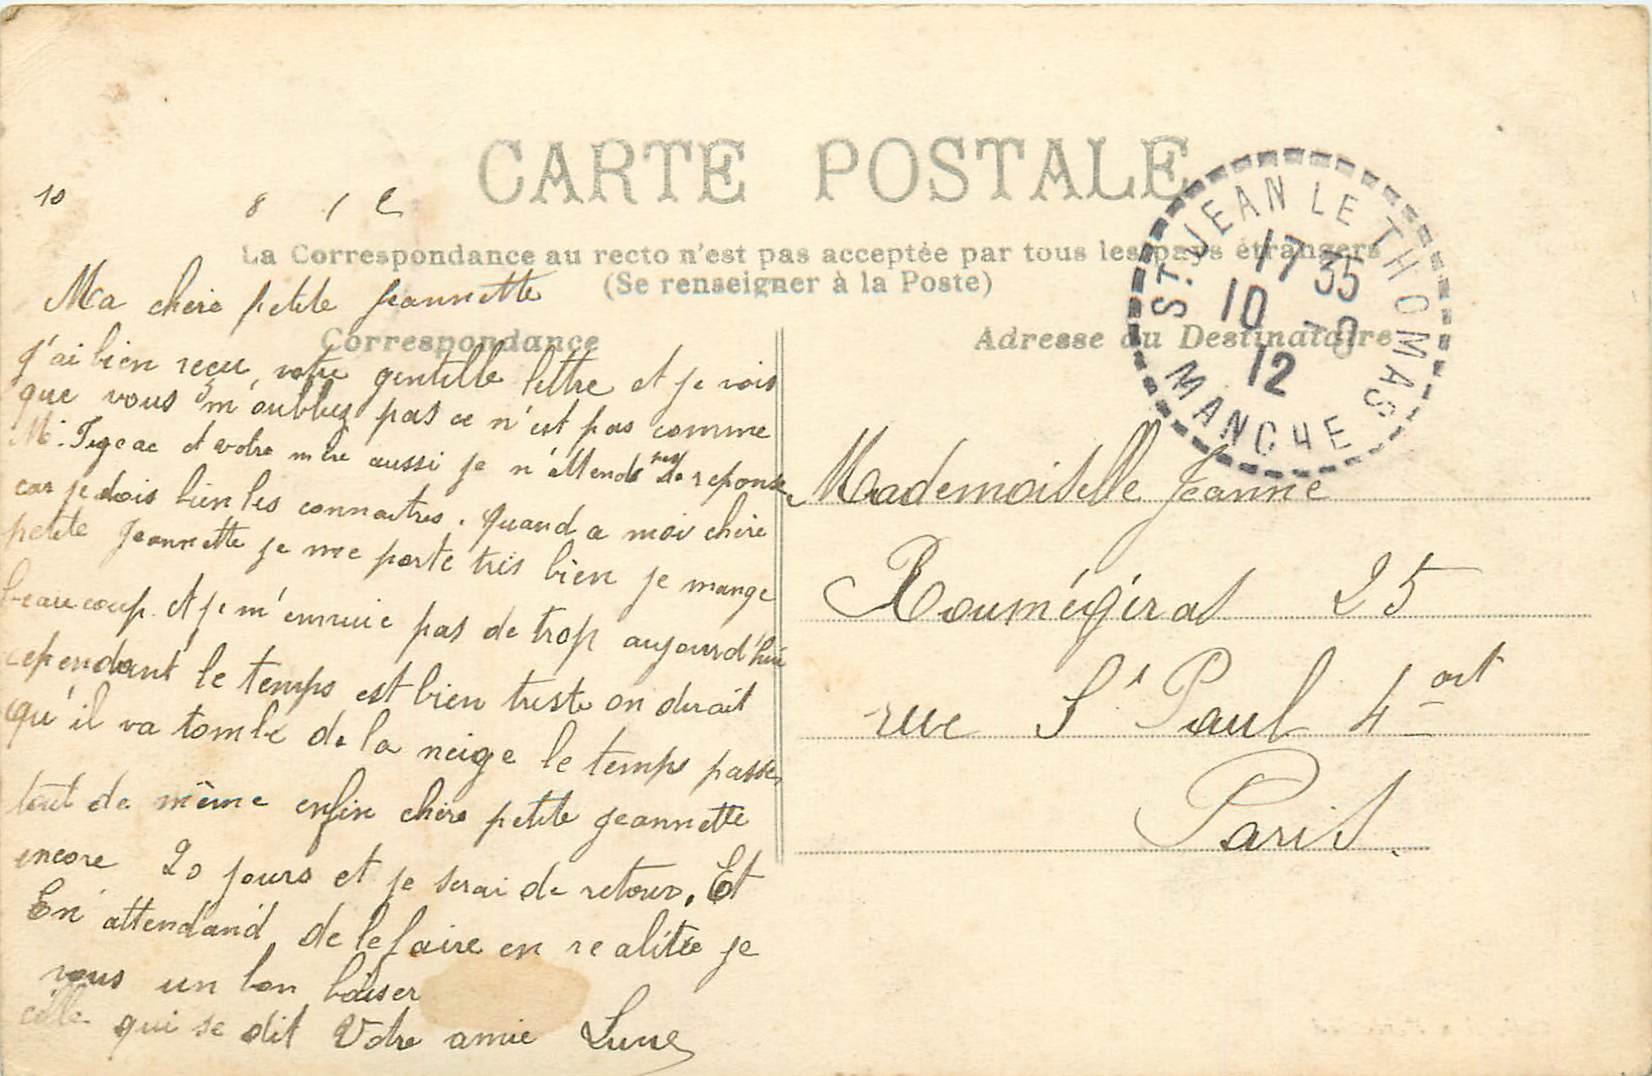 CARTE POSTALE
10 8 12
La Correspondance au recto n'est pas acceptée par tous les pays étrangers
(Se renseigner à la Poste)
Correspondance
Adresse du Destinataire
ST. JEAN LE THOMAS
17 35
10 - 8
12
MANCHE
Ma chère petite Jeannette
j'ai bien reçu votre gentille lettre et je vois
que vous m'oubliez pas ce n'est pas comme
Mr. et votre mère aussi je n'attends de reponse
car je dois bien les connaitres. quand a moi chère
petite Jeannette je me porte très bien je mange
beaucoup et je m'ennuie pas de trop aujourd'hui
cependant le temps est bien triste on dirait
qu'il va tombé de la neige le temps passe
tout de même enfin chère petite Jeannette
encore 20 jours et je serai de retour. Et
En attendand de le faire en realitée je
vous un bon baiser
celle qui se dit Votre amie
Mademoiselle Jeanne
Roumégéras 25
rue St Paul 4 art
Paris.